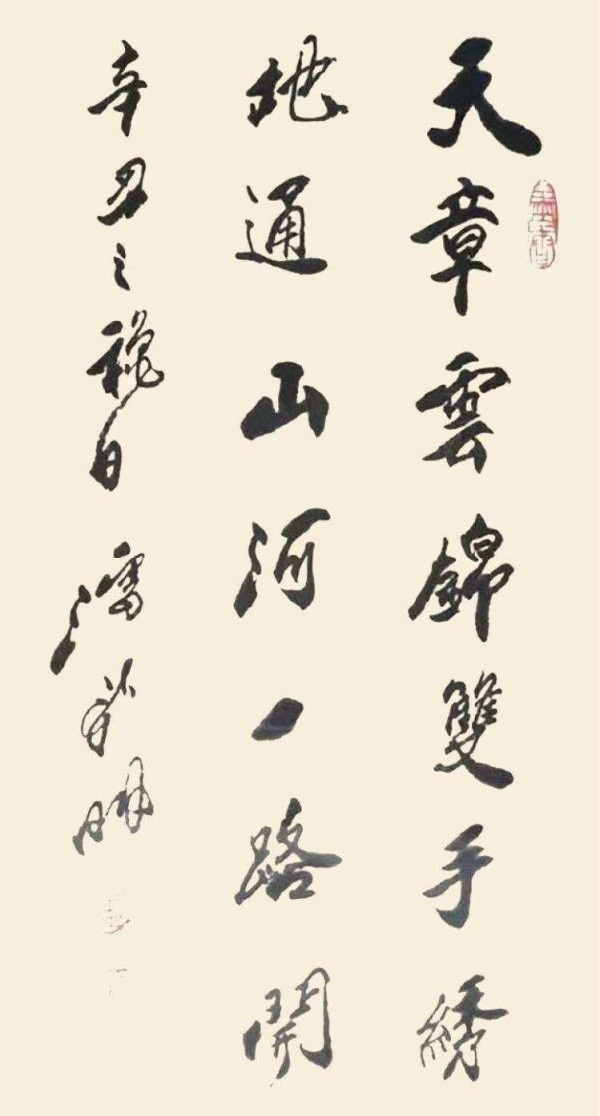 天章雲錦雙手綉
地通山河一路開
辛丑之穐日 潘
明